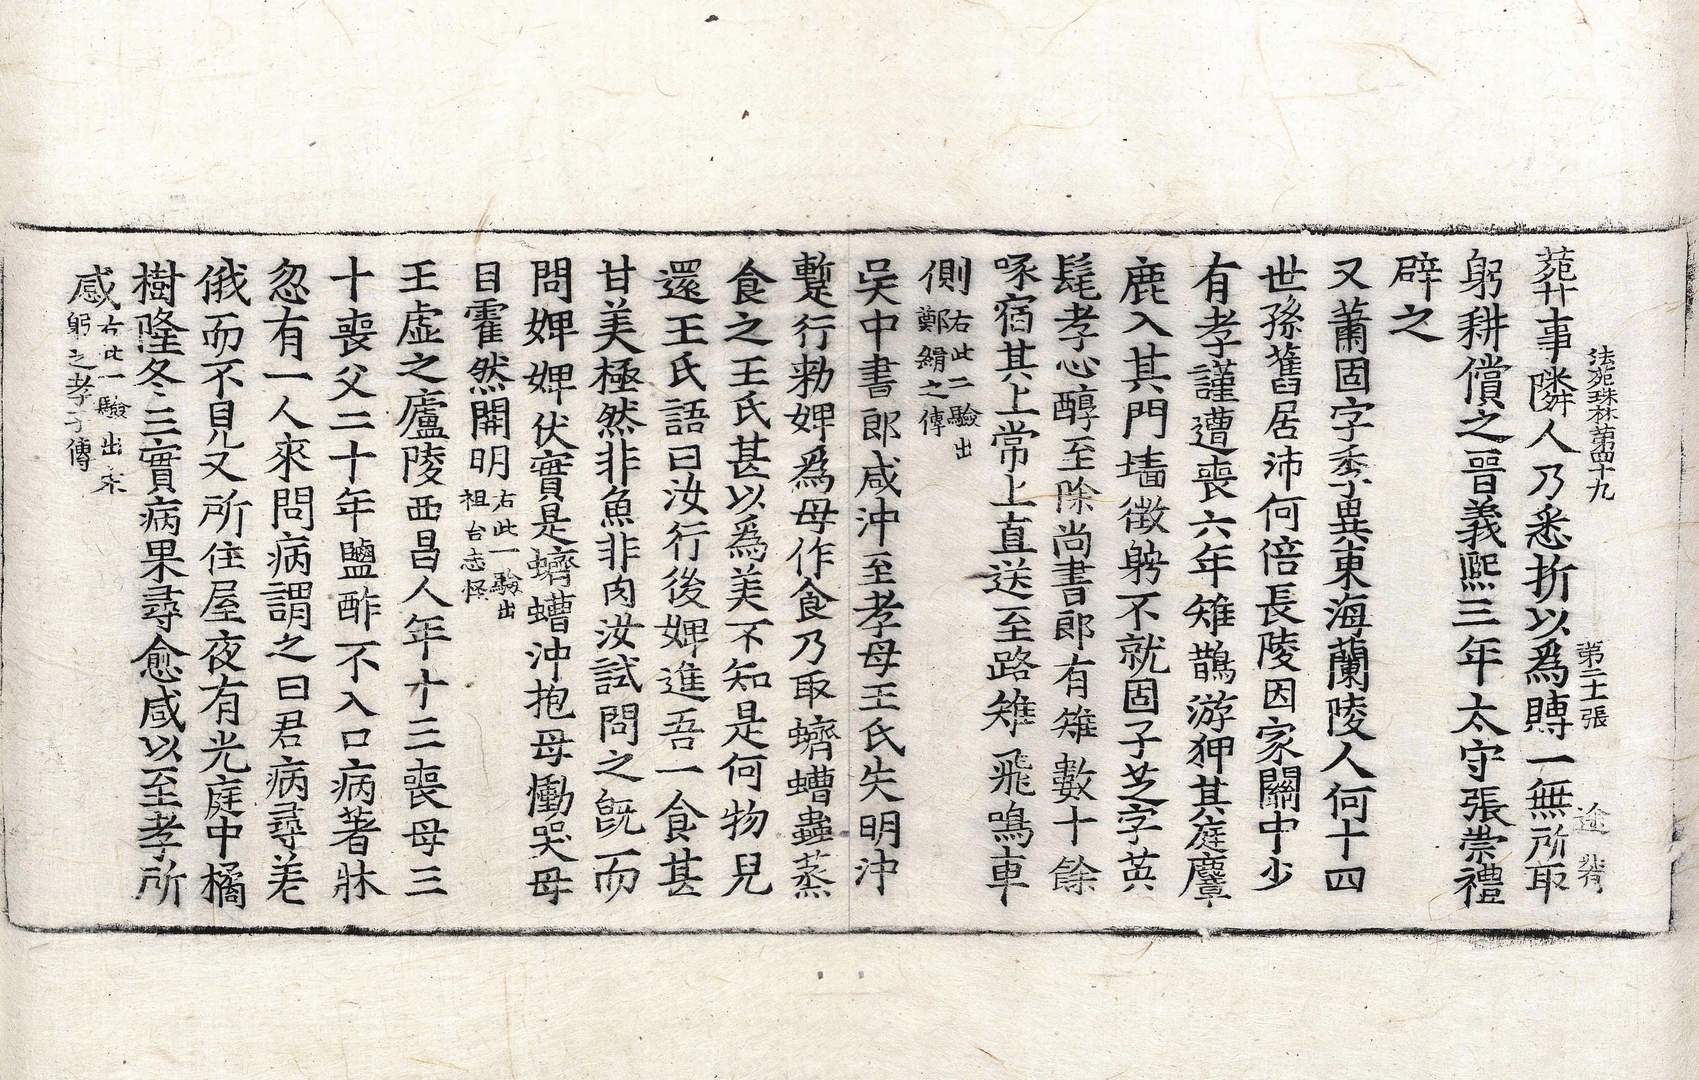 法苑珠林第四十九 第二十張 途
葬事隣人乃悉折以爲賻一無所取
躬耕償之晉義熙三年太守張崇禮
辟之
又蕭固字秀異東海蘭陵人何十四
世孫舊居沛何倍長陵因家關中少
有孝謹遭喪六年雉鵲游狎其庭麞
鹿入其門墻徵躬不就固子芝字英
髦孝心醇至除尚書郎有雉數十餘
啄宿其上常上直送至路雉飛鳴車
側右此二驗出鄭緝之傳
吳中書郎咸沖至孝母王氏失明沖
暫行勑婢爲母作食乃取蠐螬蟲蒸
食之王氏甚以爲美不知是何物兒
還王氏語曰汝行後婢進吾一食甚
甘美極然非魚非肉汝試問之旣而
問婢婢伏實是蠐螬沖抱母慟哭母
目霍然開明右此一驗出祖台志怪
王虛之廬陵西昌人年十三喪母三
十喪父二十年鹽酢不入口病著牀
忽有一人來問病謂之曰君病尋差
俄而不見又所住屋夜有光庭中橘
樹隆冬三實病果尋愈咸以至孝所
感右此一驗出宋躬之孝子傳